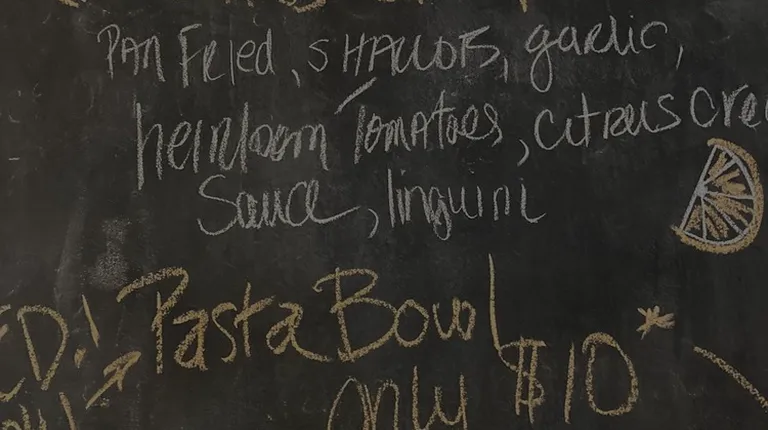 Pan Fried, SHALLOTS, garlic,
heirloom Tomatoes, citrus cre
Sauce, linguini
ED! Pasta Bowl
only $10*